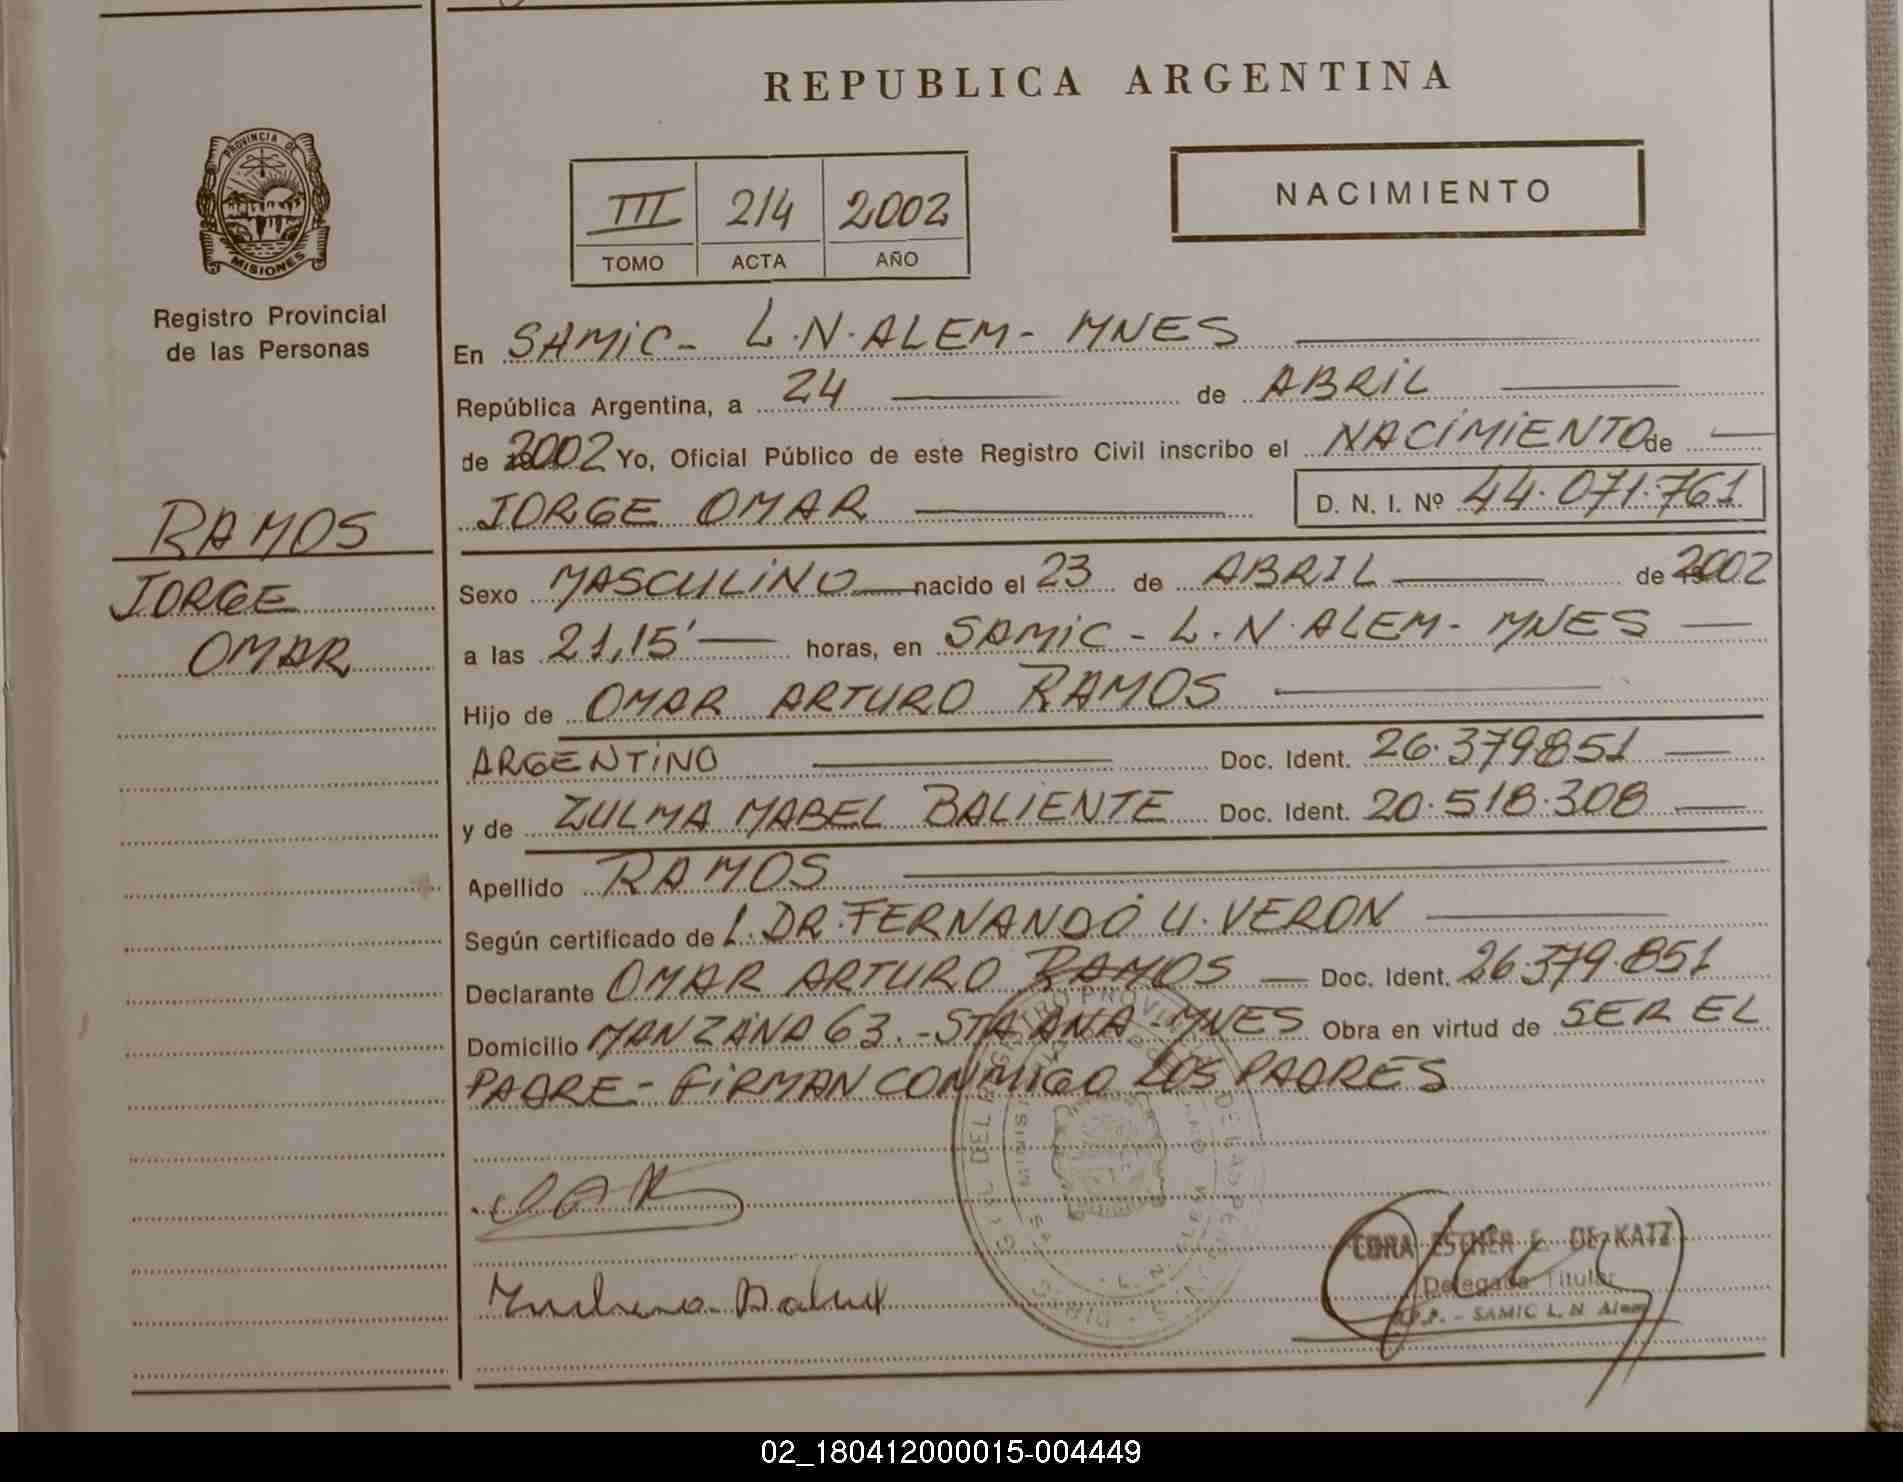 REPUBLICA ARGENTINA
PROVINCIA DE
MISIONES
Registro Provincial
de las Personas
III 214 2002
TOMO ACTA AÑO
NACIMIENTO
RAMOS
JORGE
OMAR
En SAMIC - L.N. ALEM - MNES
República Argentina, a 24 de ABRIL
de 2002 Yo, Oficial Público de este Registro Civil inscribo el NACIMIENTO de
JORGE OMAR D. N. I. Nº 44.071.761
Sexo MASCULINO nacido el 23 de ABRIL de 2002
a las 21,15' horas, en SAMIC - L.N. ALEM - MNES
Hijo de OMAR ARTURO RAMOS
ARGENTINO Doc. Ident. 26.379.851
y de ZULMA MABEL BALIENTE Doc. Ident. 20.518.308
Apellido RAMOS
Según certificado de L. DR. FERNANDO U. VERON
Declarante OMAR ARTURO RAMOS Doc. Ident. 26.379.851
Domicilio MANZANA 63 - STA ANA - MNES Obra en virtud de SER EL
PADRE - FIRMAN CONMIGO LOS PADRES
ESTHER E. DE KATZ
Delegada Titular
SAMIC L. N. Alem
02_180412000015-004449